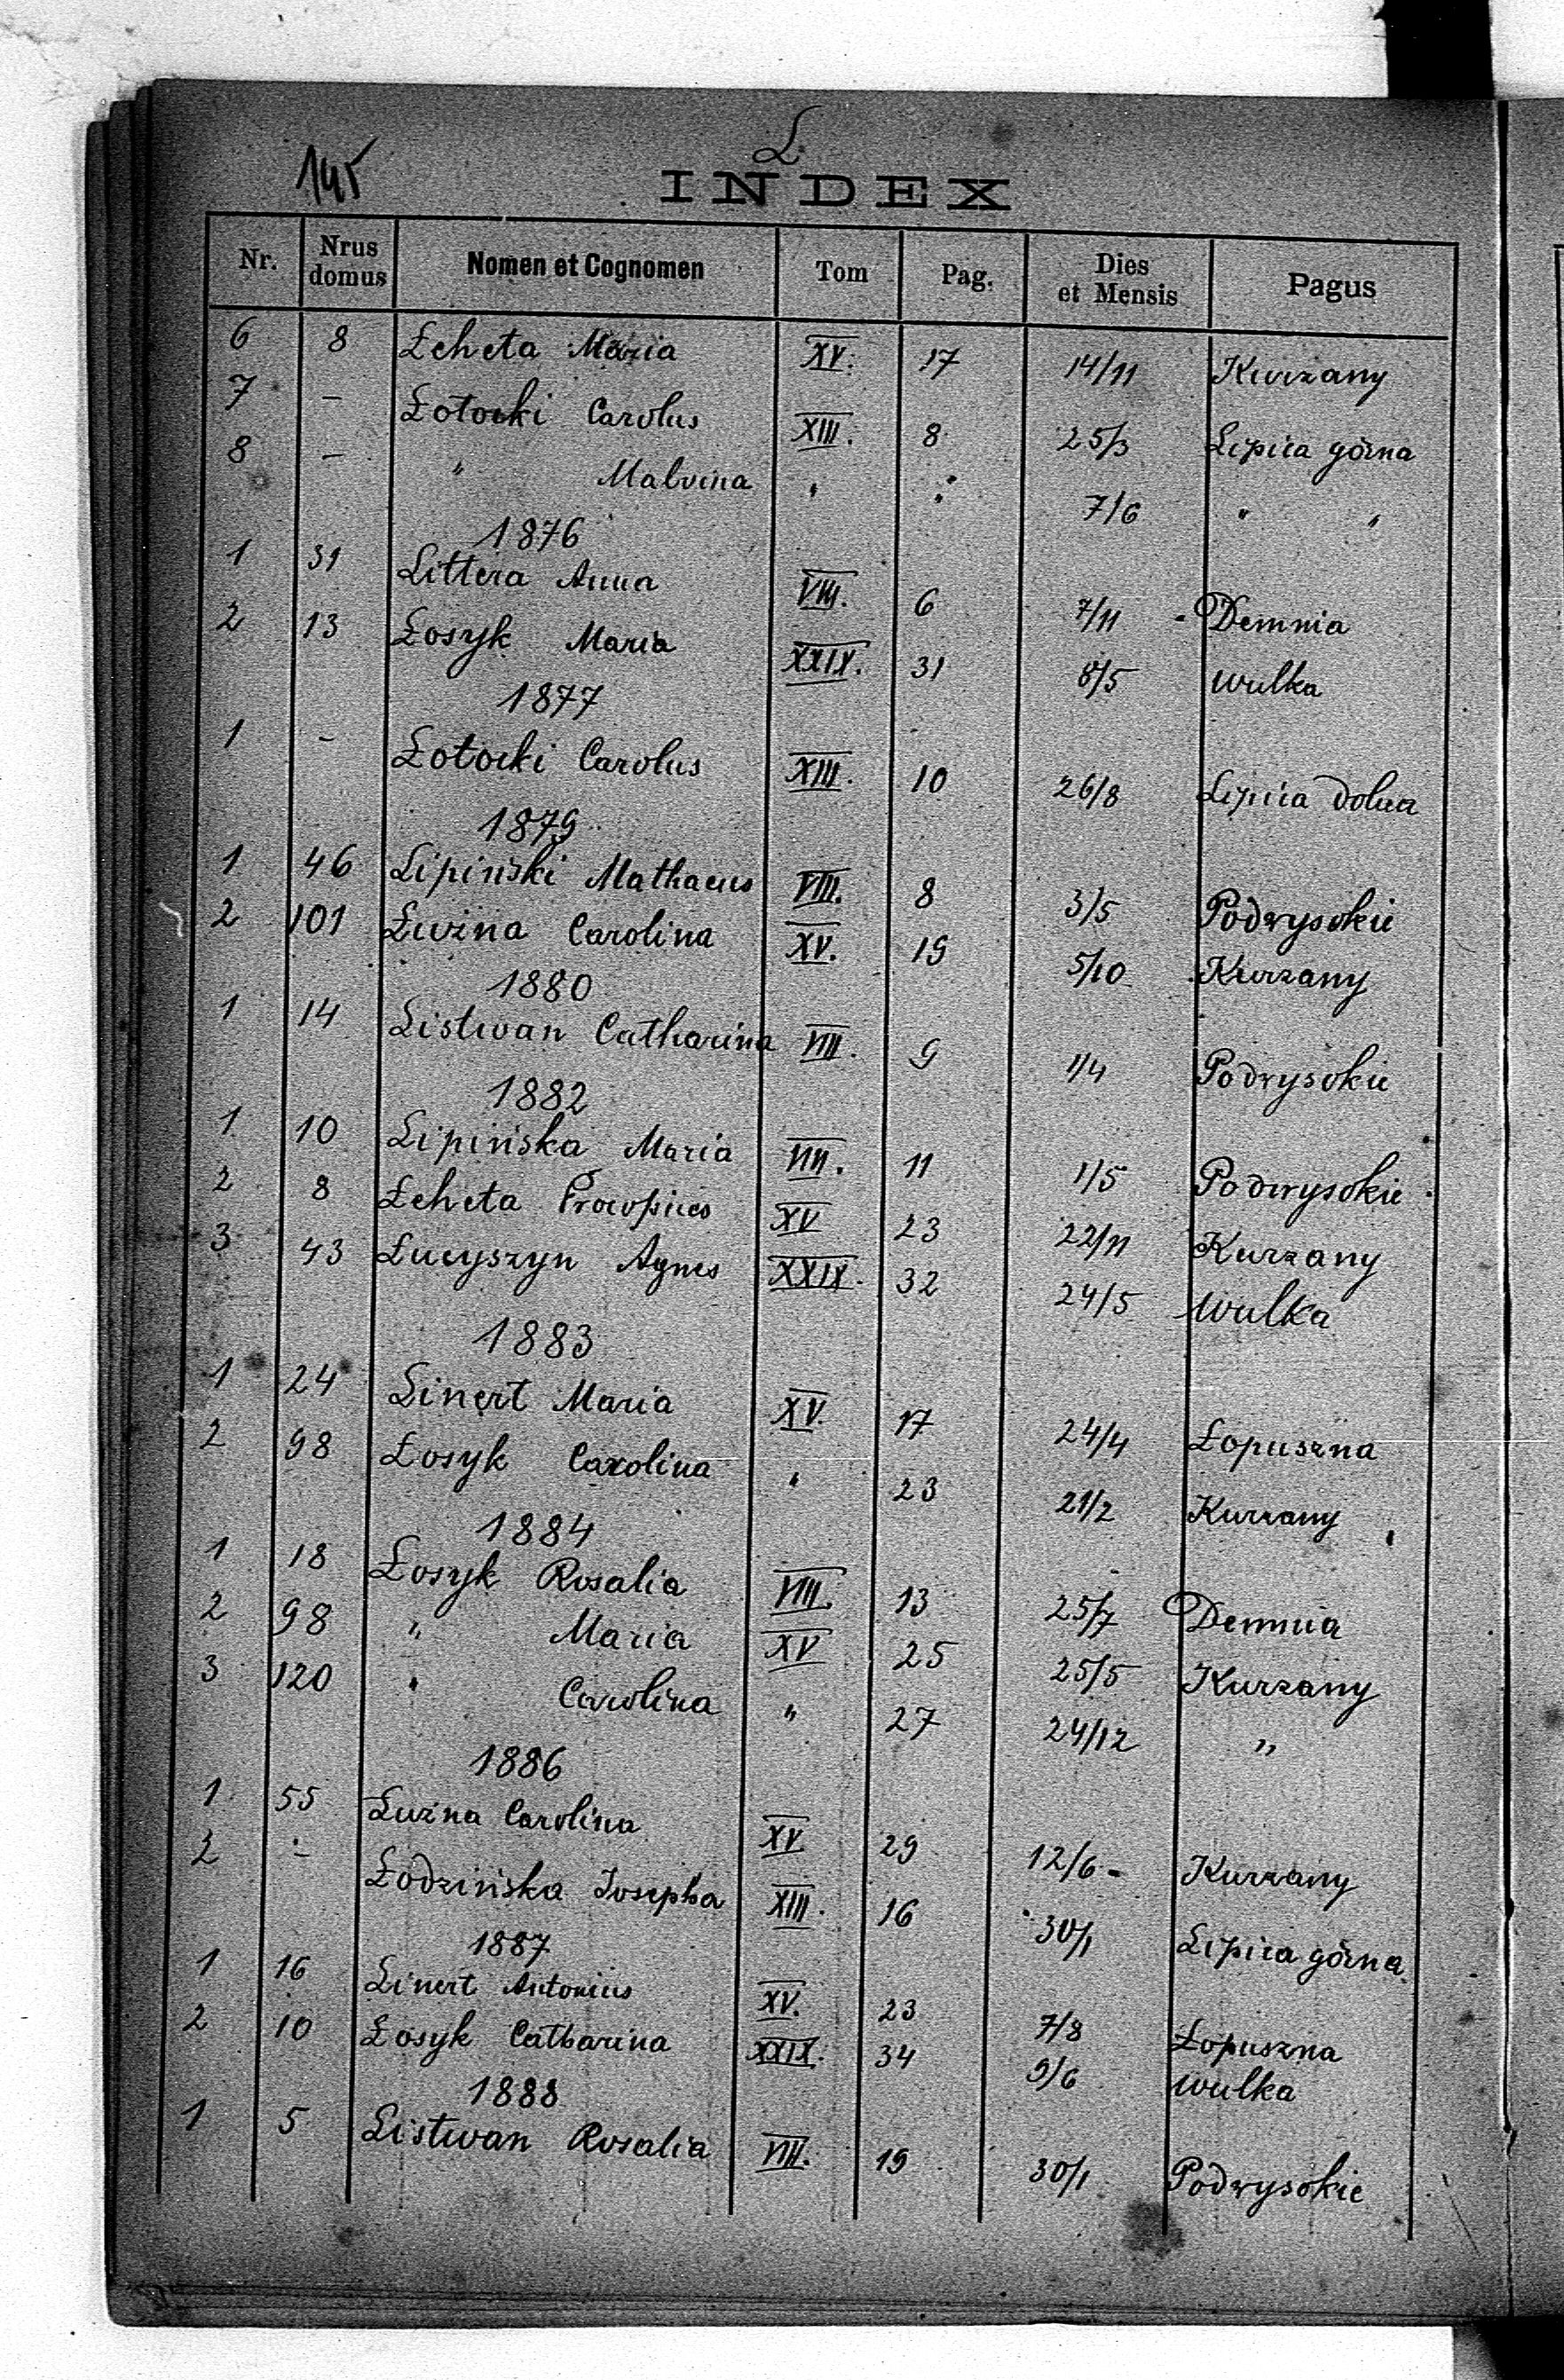 145
L.
INDEX
Nr. Nrus domus Nomen et Cognomen Tom Pag. Dies et Mensis Pagus
6 8 Łeheta Maria XV. 17 14/11 Kurzany
7 – Łotocki Carolus XIII. 8 25/3 Lipica górna
8 – " Malvina " " 7/6 " "
1876
1 31 Littera Anna VIII. 6 7/11 Demnia
2 13 Łosyk Maria XXIX. 31 8/5 Wulka
1877
1 – Łotocki Carolus XIII. 10 26/8 Lipica dolna
1879
1 46 Lipiński Mathaeus VIII. 8 3/5 Podwysokie
2 101 Łuzna Carolina XV. 19 5/10 Kurzany
1880
1 14 Listwan Catharina VIII. 9 1/4 Podwysokie
1882
1 10 Lipińska Maria VIII. 11 1/5 Podwysokie
2 8 Łeheta Procopius XV 23 22/11 Kurzany
3 43 Łucyszyn Agnes XXIX. 32 24/5 Wulka
1883
1 24 Linert Maria XV. 17 24/4 Łopuszna
2 98 Łosyk Carolina " 23 21/2 Kurzany
1884
1 18 Łosyk Rosalia VIII. 13 25/7 Demnia
2 98 " Maria XV 25 25/5 Kurzany
3 120 " Carolina " 27 24/12 "
1886
1 55 Łuzna Carolina XV. 29 12/6 Kurzany
2 – Łodzińska Josepha XIII. 16 30/1 Lipica górna
1887
1 16 Linert Antonius XV. 23 7/8 Łopuszna
2 10 Łosyk Catharina XXIX. 34 9/6 Wulka
1888
1 5 Listwan Rosalia VIII. 19 30/1 Podwysokie